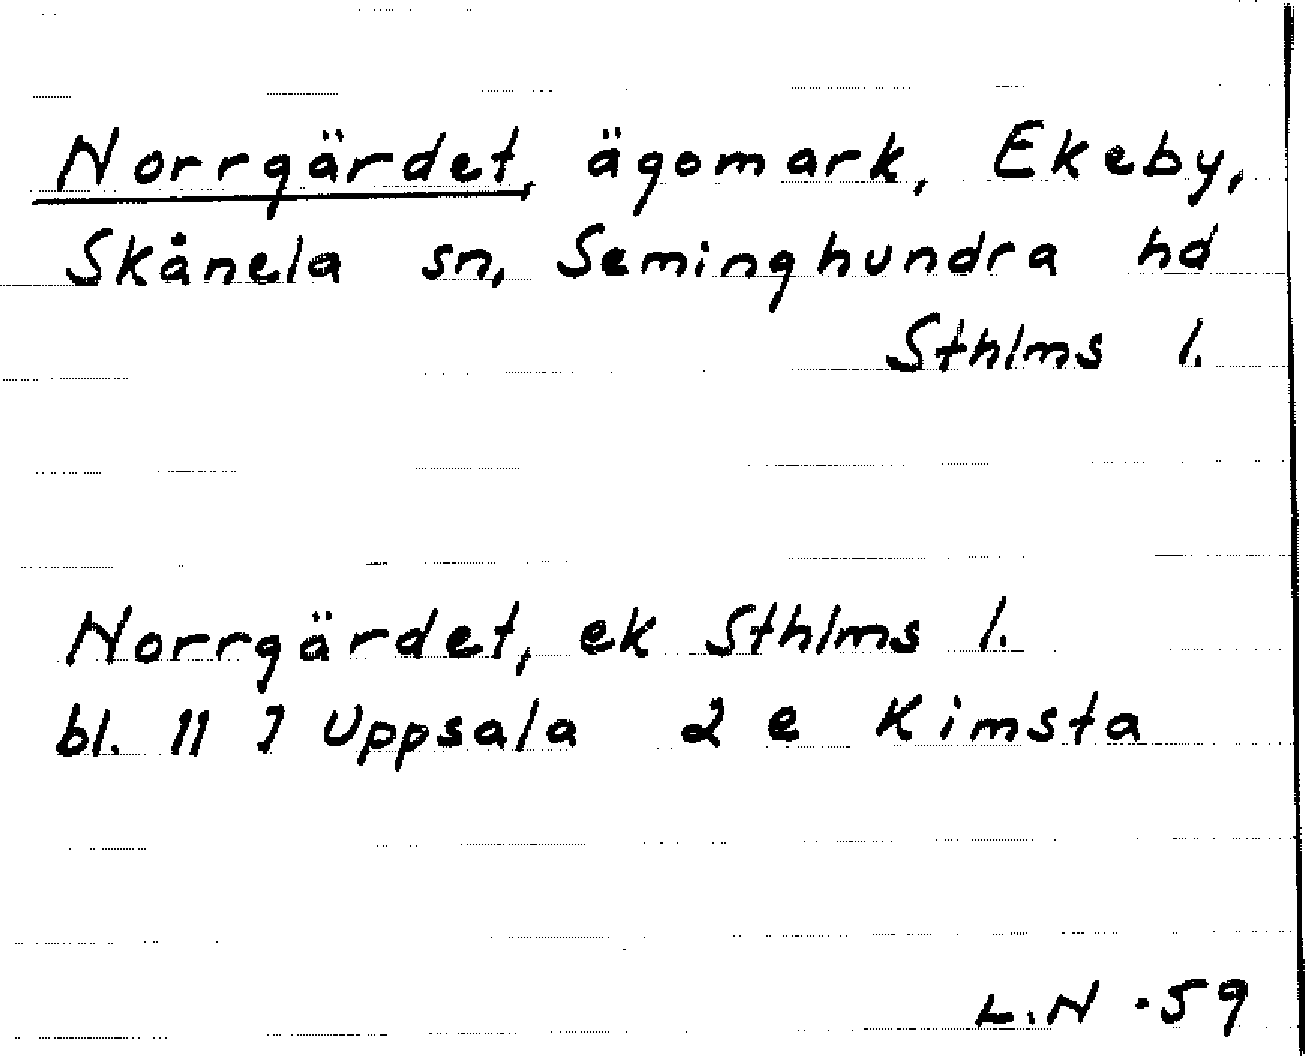 Norrgärdet, ägomark, Ekeby,
Skånela sn, Seminghundra hd
Sthlms l.
Norrgärdet, ek Sthlms l.
bl. 11 J Uppsala 2 e Kimsta
L.N -59